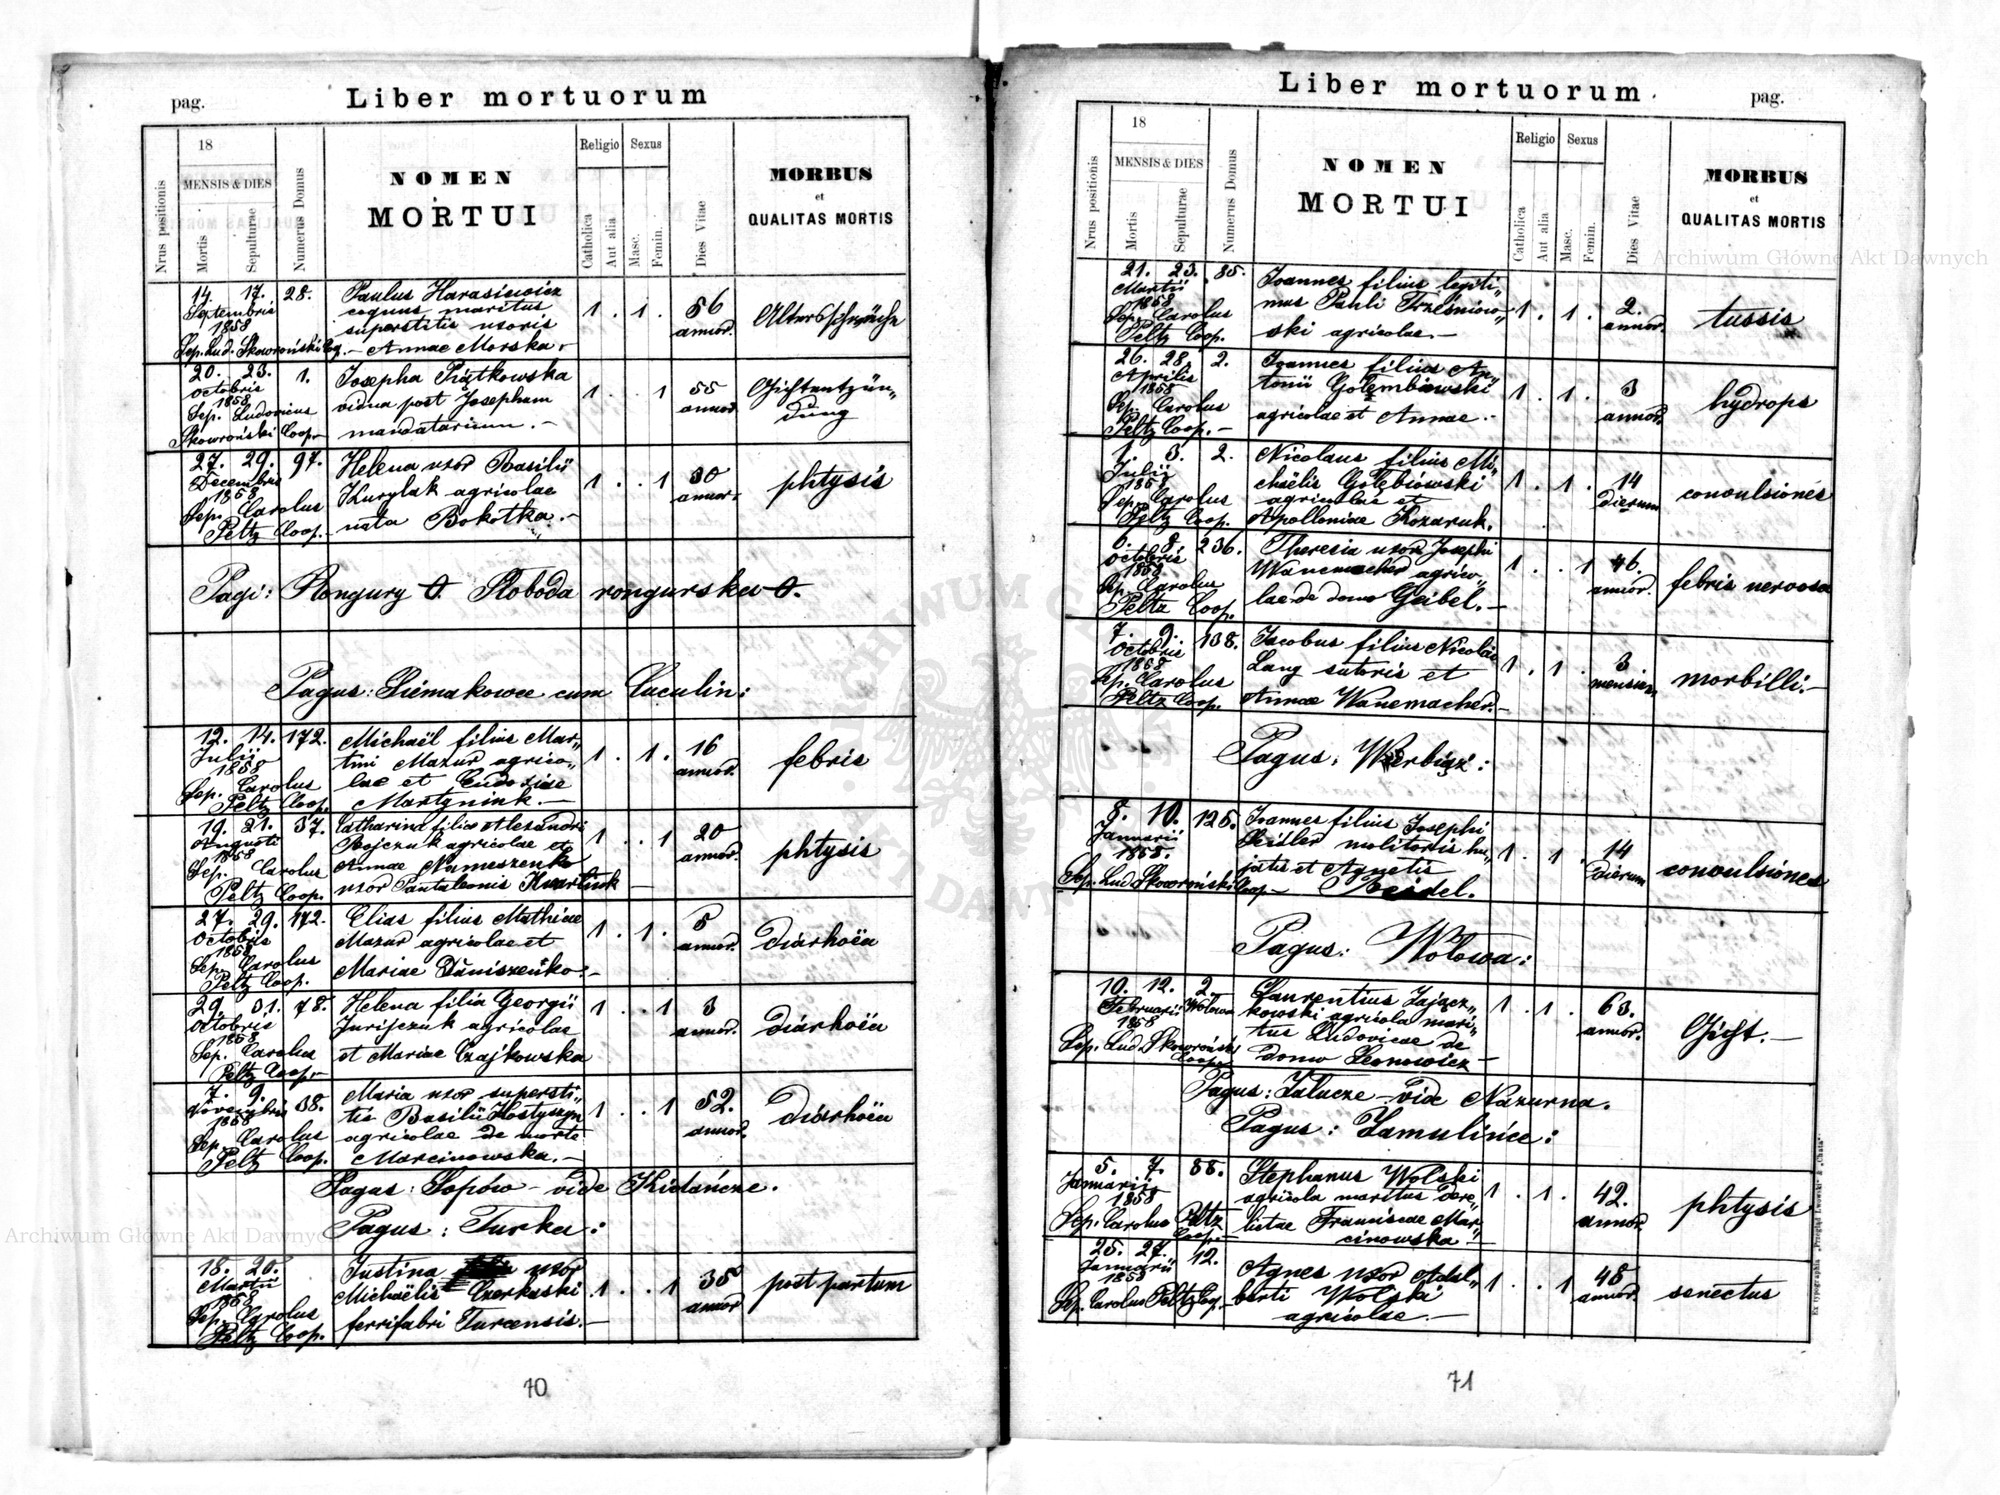 pag.
Liber mortuorum
Nrus positionis
18
MENSIS & DIES
Mortis
Sepulturae
Numerus Domus
NOMEN
MORTUI
Religio
Catholica
Aut alia
Sexus
Masc.
Femin.
Dies Vitae
MORBUS
et
QUALITAS MORTIS
14. 17. 28.
Septembris
1858
Sep. Lud. Skowroński Cop.
Paulus Harasiewicz
coquus maritus
superstitis uxoris
Annae Morska.
1 . 1 .
56
annor.
Altersschwäche
20. 23. 1.
Octobris
1858
Sep. Ludovicus
Skowroński Coop.
Josepha Piątkowska
vidua post Josephum
mandatarium.
1 . . 1
55
annor.
27. 29. 97.
Decembris
1858
Sep. Carolus
Peltz Coop.
Helena uxor Basilii
Kurylak agricolae
nata Bokotka.
1 . . 1
30
annor.
phtysis
Pagi: Rongury O. Sloboda rongurska O.
Pagus: Siemakowce cum Cuculin:
12. 14. 172.
Julii
1858
Sep. Carolus
Peltz Coop.
Michaël filius Mar„
tini Mazur agrico„
lae et Eudoxiae
Martyniuk.
1 . 1 .
16
annor.
febris
19. 21. 37.
Augusti
1858
Sep. Carolus
Peltz Coop.
Catharina filia Alexandri
Bojczuk agricolae et
Annae
uxor Pantaleonis
1 . . 1
20
annor.
phtysis
27. 29. 172.
Octobris
1858
Sep. Carolus
Peltz Coop.
Elias filius Mathiae
Mazur agricolae et
Mariae Daniszeńko.
1 . 1 .
5
annor.
diárhoëa
29. 31. 78.
Octobris
1858
Sep. Carolus
Peltz Coop.
Helena filia Georgii
Jurijczuk agricolae
et Mariae Czajkowska
1 . . 1
3
annor.
diárhoëa
7. 9. 38.
Novembris
1858
Sep. Carolus
Peltz Coop.
Maria uxor supersti„
tis Basilii Kostyszyn
agricolae de
Marcinowska.
1 . . 1
52.
annor.
diárhoëa
Pagus: Sopów – vide Kidańcze.
Pagus: Turka:
18. 20.
Martii
1858
Sep. Carolus
Peltz Coop.
Justina uxor
Michaëlis Czerkaski
ferrifabri Turcensis.
1 . . 1
35
annor.
post partum
70
Liber mortuorum
pag.
Nrus positionis
18
MENSIS & DIES
Mortis
Sepulturae
Numerus Domus
NOMEN
MORTUI
Religio
Catholica
Aut alia
Sexus
Masc.
Femin.
Dies Vitae
MORBUS
et
QUALITAS MORTIS
21. 23. 85.
Martii
1858
Sep. Carolus
Peltz Coop.
Joannes filius legiti„
mus Pauli Trześniow„
ski agricolae.
1 . 1 .
2.
annor.
tussis
26. 28. 2.
Aprilis
1858
Sep. Carolus
Peltz Coop.
Joannes filius An„
tonii Golembiowski
agricolae et Annae.
1 . 1 .
3
annor.
hydrops
1. 3. 2.
Julii
1858
Sep. Carolus
Peltz Coop.
Nicolaus filius Mi„
chaëlis Golębiowski
agricolae et
Apolloniae Kozaruk.
1 . 1 .
14
dierum
convulsiones
6. 8. 236.
Octobris
1858
Sep. Carolus
Peltz Coop.
Theresia uxor Josephi
Wanemacher agrico„
lae de domo Geibel.
1 . . 1
46.
annor.
febris nervosa
7. 9. 138.
Octobris
1858
Sep. Carolus
Peltz Coop.
Jacobus filius Nicolai
Lang sutoris et
Annae Wanemacher.
1 . 1 .
3
mensium
morbilli.
Pagus: Werbiąż:
8. 10. 125.
Januarii
1858.
Sep. Lud. Skowroński Coop.
Joannes filius Josephi
Seidler molitoris hu„
jatis et Agnetis
Seidel.
1 . 1 .
14
dierum
convulsiones
Pagus: Wolowa:
10. 12. 2.
Februarii Wolowa
1858
Sep. Lud. Skowroński
Coop.
Laurentius Zającz„
kowski agricola mari„
tus Ludovicae de
domo Leonowicz
1 . 1 .
63.
annor.
Gicht.
Pagus: Zalucze – vide Nazurna.
Pagus: Zamulińce:
5. 7. 88.
Januarii
1858
Sep. Carolus Peltz
Coop.
Stephanus Wolski
agricola maritus dere„
lictae Franciscae Mar„
cinowska
1 . 1 .
42.
annor.
phtysis
25. 27. 12.
Januarii
1858
Sep. Carolus Peltz Cop.
Agnes uxor Adal„
berti Wolski
agricolae.
1 . . 1
48
annor.
senectus
71
Archiwum Główne Akt Dawnych
Archiwum Główne Akt Dawnych
ARCHIWUM GŁÓWNE AKT DAWNYCH